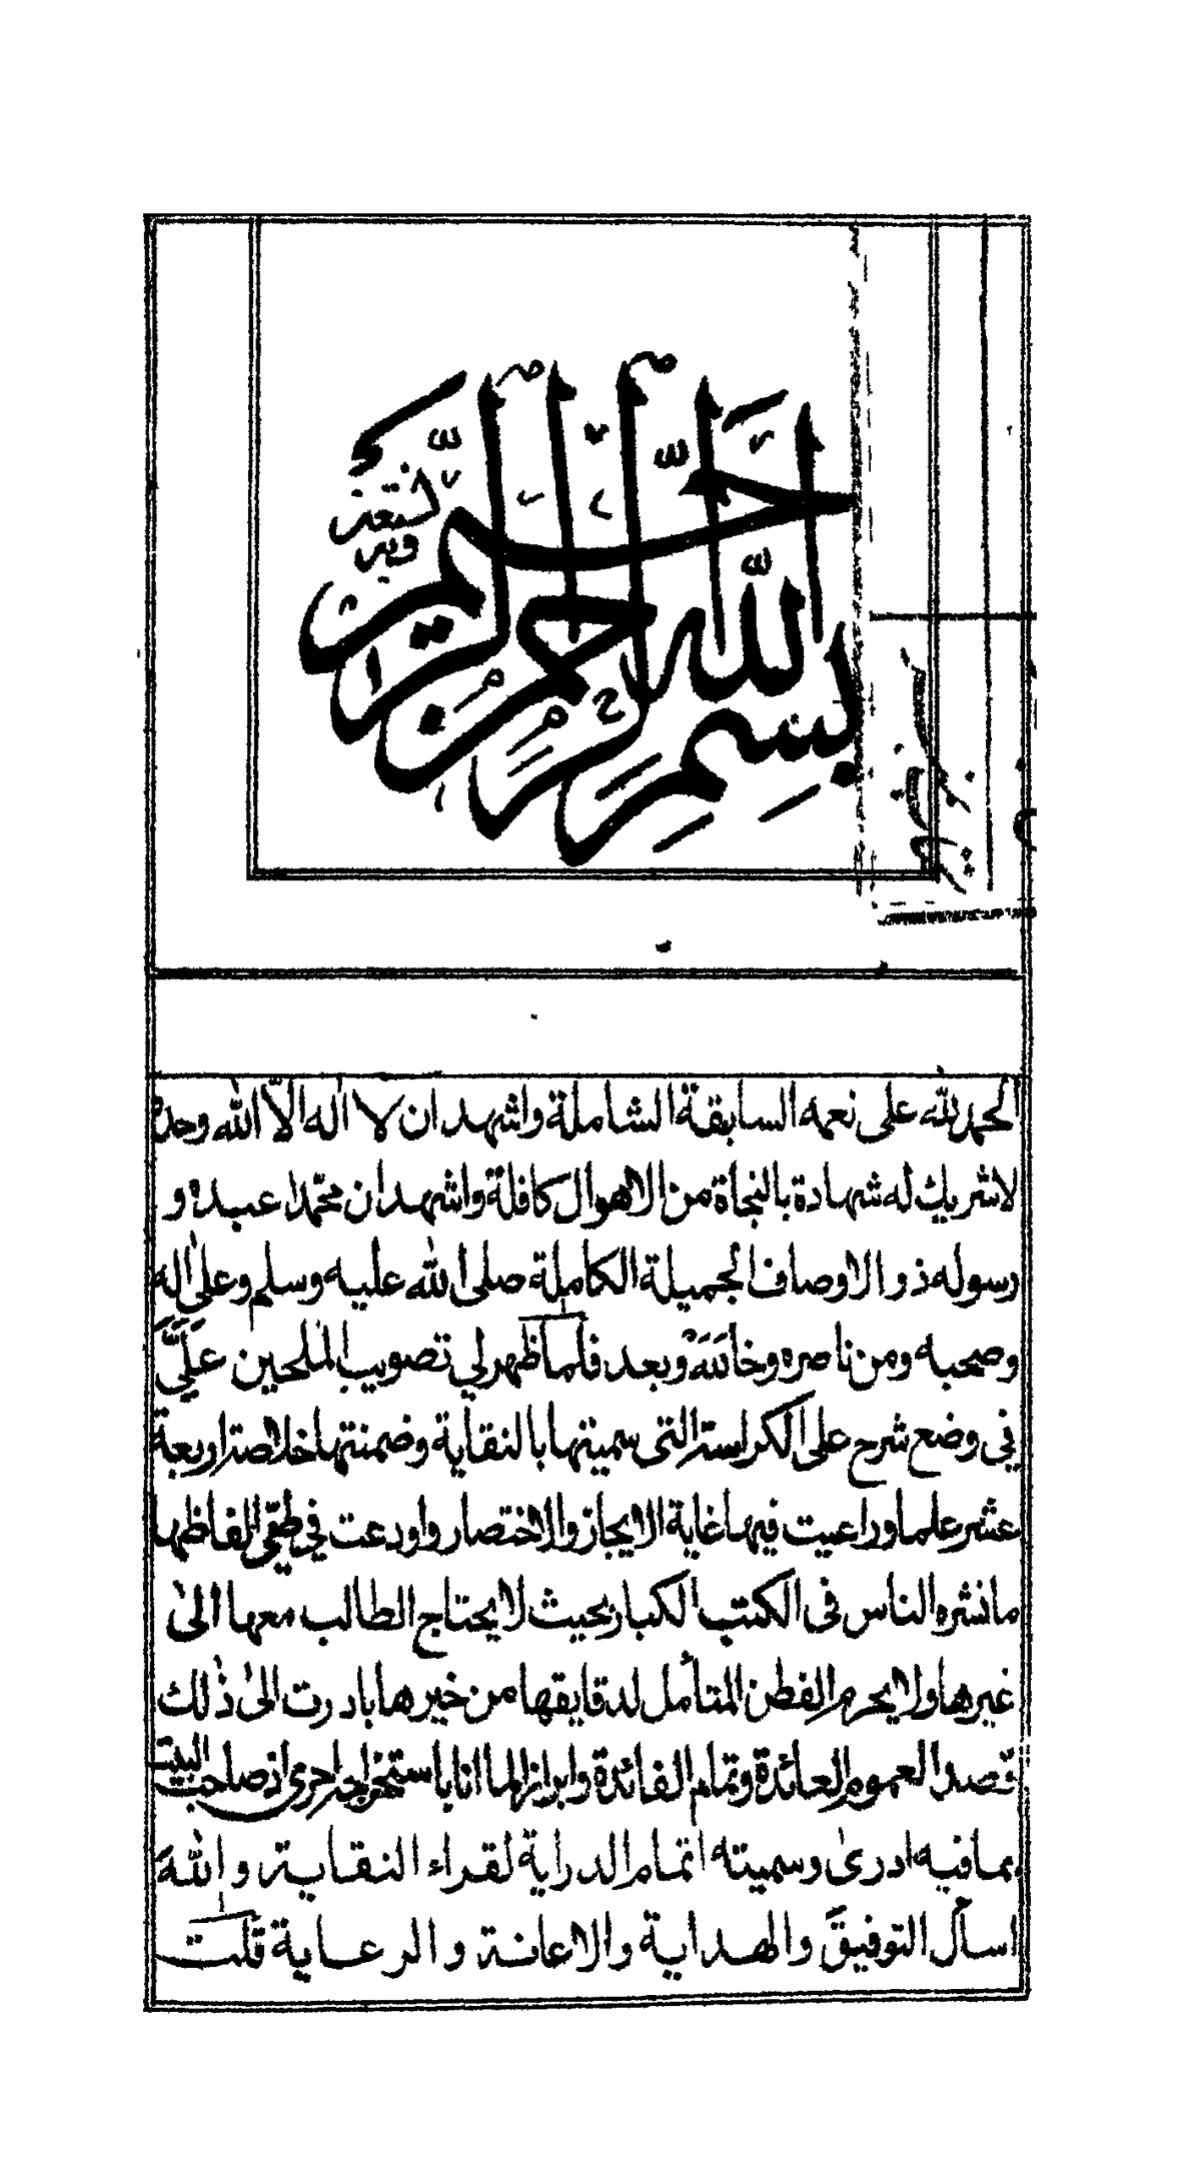 بسم الله الرحمن الرحيم
وبه نستعين
الحمد لله على نعمه السابقة الشاملة واشهد ان لا اله الا الله وحده
لا شريك له شهادة بالنجاة من الاهوال كافلة واشهد ان محمدا عبده و
رسوله ذو الاوصاف الجميلة الكاملة صلى الله عليه وسلم وعلى اله
وصحبه ومن ناصره وخالله وبعد فلما ظهر لي تصويب الملحين عليَّ
في وضع شرح على الكراسة التى سميتها بالنقاية وضمنتها خلاصة اربعة
عشر علما وراعيت فيها غاية الايجاز والاختصار واودعت في طي الفاظها
ما نشره الناس فى الكتب الكبار بحيث لا يحتاج الطالب معها الى
غيرها ولا يحرم الفطن المتأمل لدقايقها من خيرها بادرت الى ذلك
قصدا لعموم العائدة وتمام الفائدة وابرازا لما انا باستخراجه احرى اذ صاحب البيت
بما فيه ادرى وسميته اتمام الدراية لقراء النقاية والله
اسأل التوفيق والهداية والاعانة والرعاية قلت